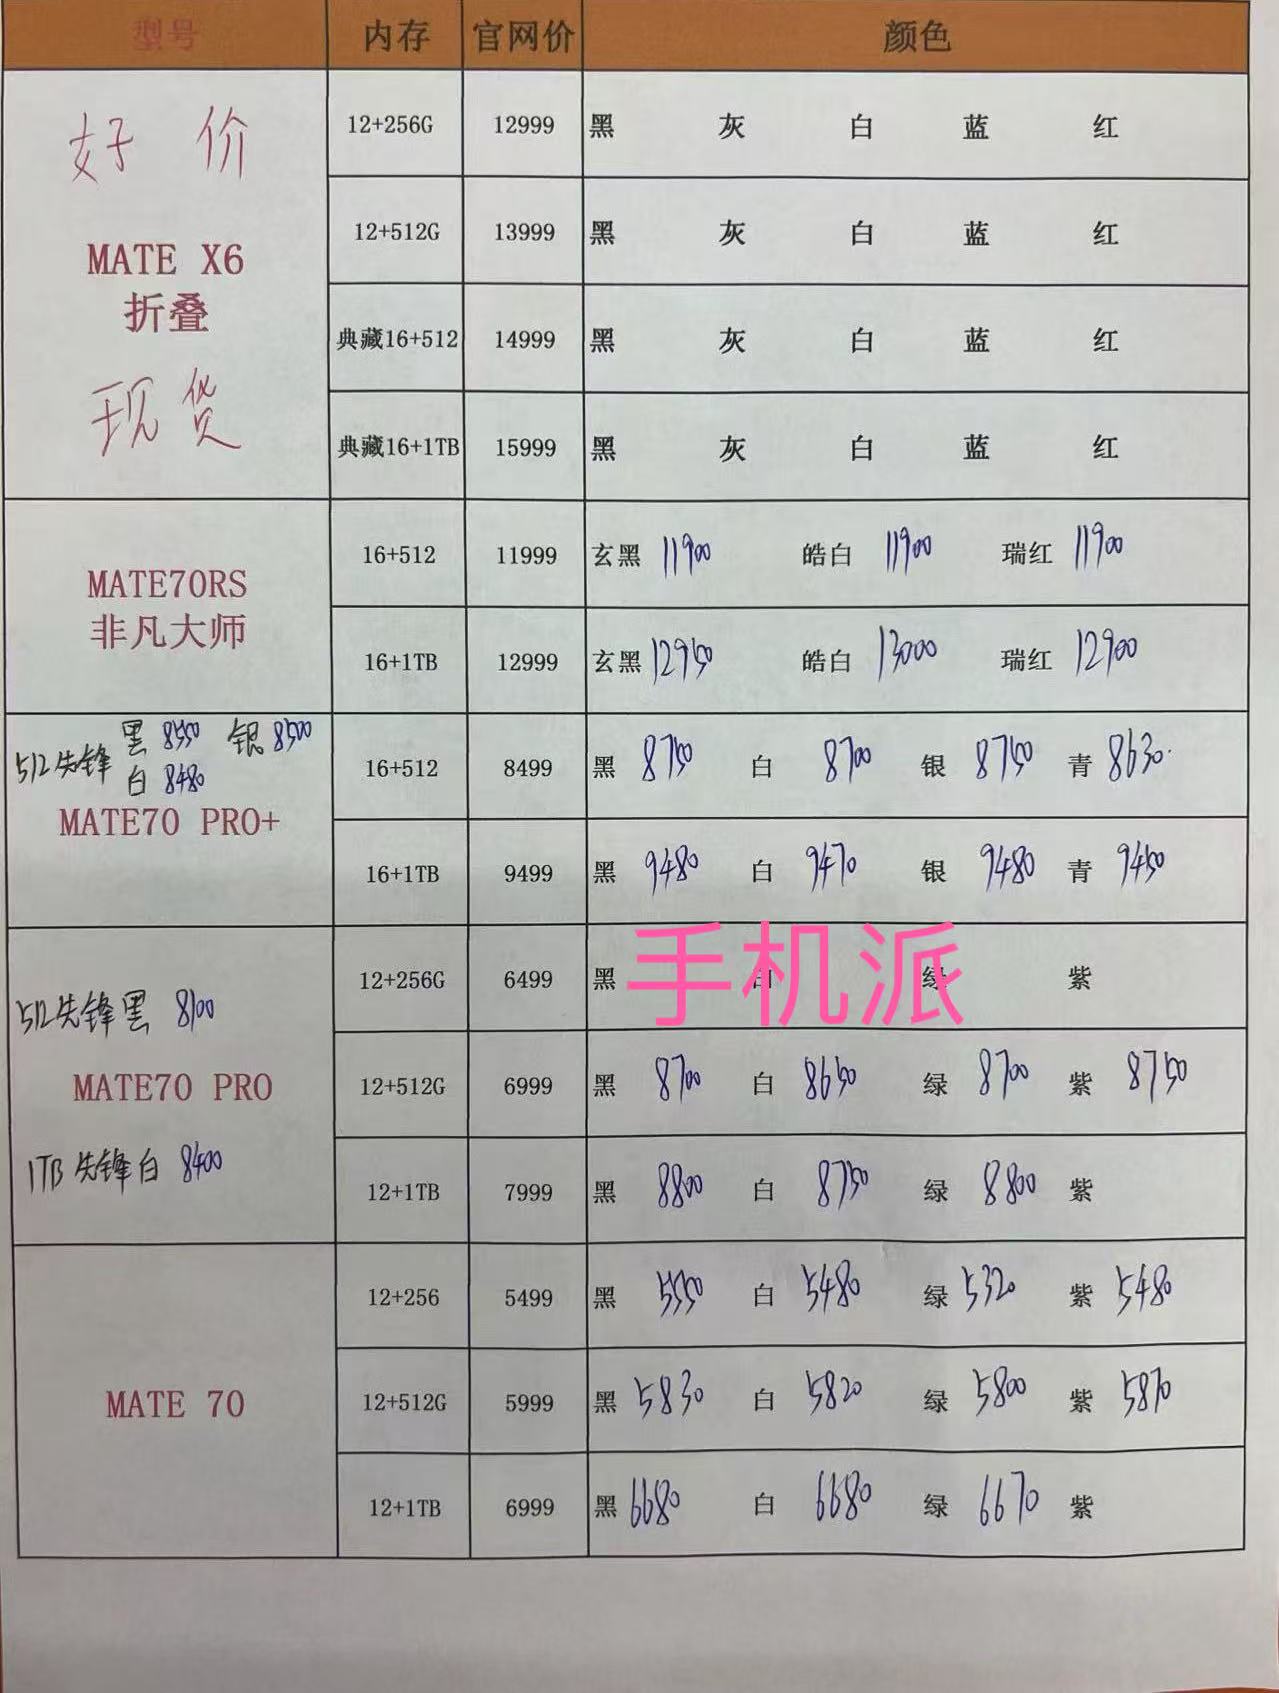 型号 内存 官网价 颜色
好 价
MATE X6
折叠
现货
12+256G 12999 黑 灰 白 蓝 红
12+512G 13999 黑 灰 白 蓝 红
典藏16+512 14999 黑 灰 白 蓝 红
典藏16+1TB 15999 黑 灰 白 蓝 红
MATE70RS
非凡大师
16+512 11999 玄黑 11900 皓白 11900 瑞红 11900
16+1TB 12999 玄黑 12950 皓白 13000 瑞红 12900
512先锋 黑 8550 银 8500
白 8480
MATE70 PRO+
16+512 8499 黑 8750 白 8700 银 8750 青 8630
16+1TB 9499 黑 9480 白 9470 银 9480 青 9450
手机派
512先锋黑 8100
MATE70 PRO
1TB先锋白 8400
12+256G 6499 黑 白 绿 紫
12+512G 6999 黑 8700 白 8650 绿 8700 紫 8750
12+1TB 7999 黑 8800 白 8750 绿 8800 紫
MATE 70
12+256 5499 黑 5550 白 5480 绿 5320 紫 5480
12+512G 5999 黑 5830 白 5820 绿 5800 紫 5870
12+1TB 6999 黑 6680 白 6680 绿 6670 紫